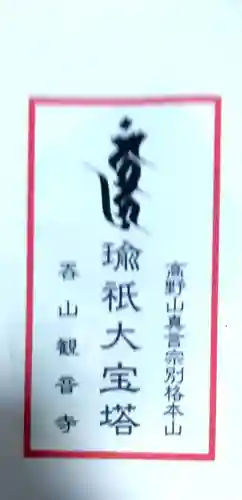 高野山真言宗別格本山
瑜祇大宝塔
香山観音寺